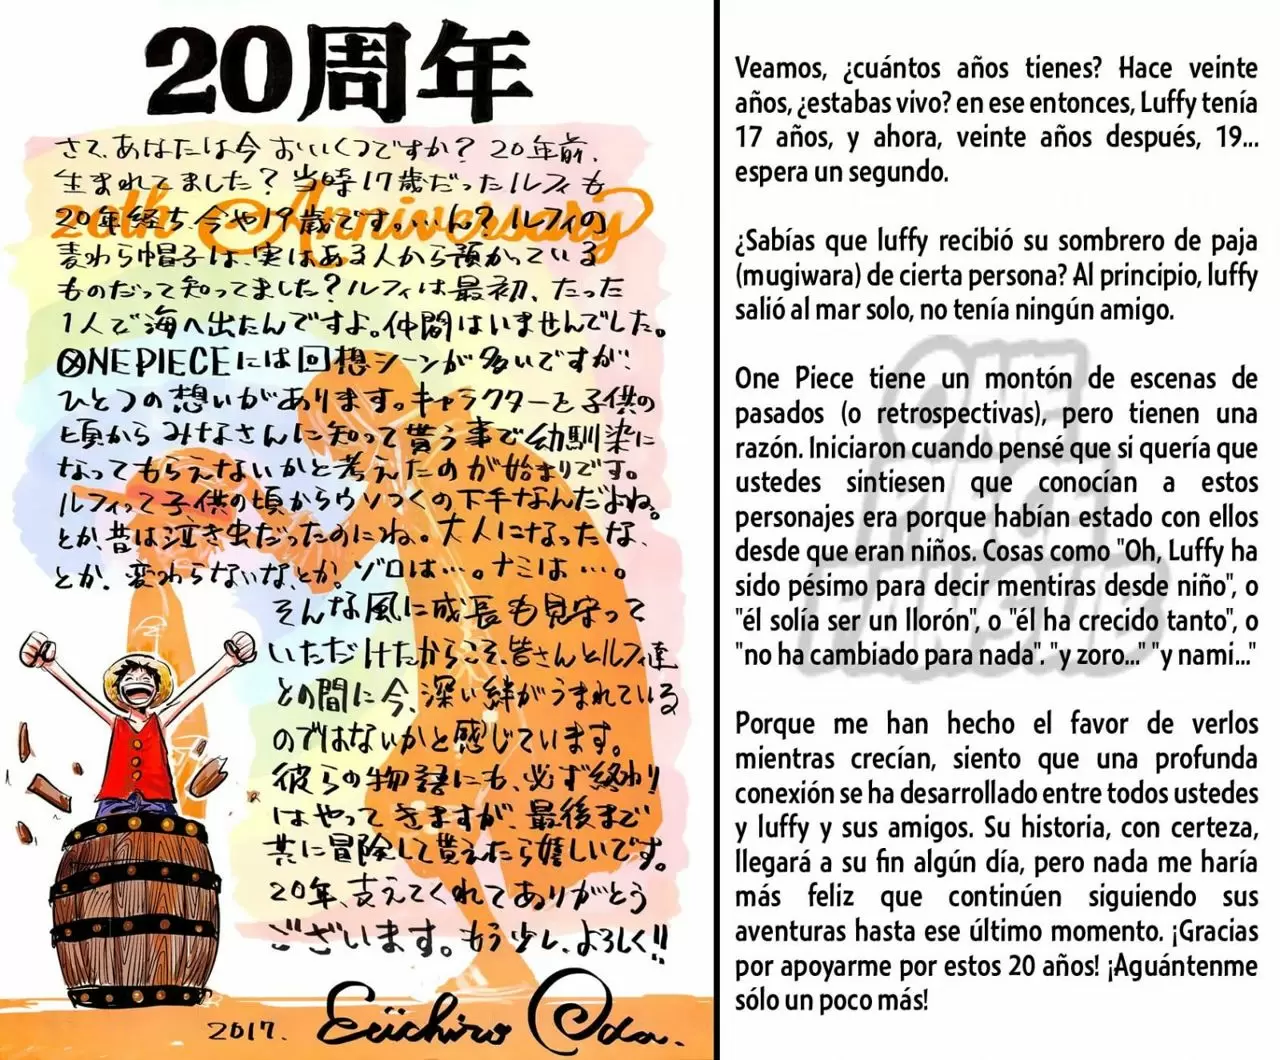 20周年
20th Anniversary
さて、あなたは今おいくつですか? 20年前、
生まれてました? 当時17歳だったルフィも
20年経ち、今や19歳です。…ん? ルフィの
麦わら帽子は、実はある人から預かっている
ものだって知ってました? ルフィは最初、たった
1人で海へ出たんですよ。仲間はいませんでした。
ONE PIECEには回想シーンが多いですが、
ひとつの想いがあります。キャラクターを子供の
頃からみなさんに知って貰う事で幼馴染に
なってもらえないかと考えたのが始まりです。
ルフィって子供の頃からウソつくの下手なんだよね。
とか、昔は泣き虫だったのにね。大人になったな、
とか、変わらないな、とか。ゾロは…。ナミは…。
そんな風に成長も見守って
いただけたからこそ、皆さんとルフィ達
との間に今、深い絆がうまれている
のではないかと感じています。
彼らの物語にも、必ず終わり
はやってきますが、最後まで
共に冒険して貰えたら嬉しいです。
20年、支えてくれてありがとう
ございます。もう少し、よろしく!!
2017. Eiichiro Oda.
Veamos, ¿cuántos años tienes? Hace veinte
años, ¿estabas vivo? en ese entonces, Luffy tenía
17 años, y ahora, veinte años después, 19...
espera un segundo.
¿Sabías que luffy recibió su sombrero de paja
(mugiwara) de cierta persona? Al principio, luffy
salió al mar solo, no tenía ningún amigo.
One Piece tiene un montón de escenas de
pasados (o retrospectivas), pero tienen una
razón. Iniciaron cuando pensé que si quería que
ustedes sintiesen que conocían a estos
personajes era porque habían estado con ellos
desde que eran niños. Cosas como "Oh, Luffy ha
sido pésimo para decir mentiras desde niño", o
"él solía ser un llorón", o "él ha crecido tanto", o
"no ha cambiado para nada". "y zoro..." "y nami..."
Porque me han hecho el favor de verlos
mientras crecían, siento que una profunda
conexión se ha desarrollado entre todos ustedes
y luffy y sus amigos. Su historia, con certeza,
llegará a su fin algún día, pero nada me haría
más feliz que continúen siguiendo sus
aventuras hasta ese último momento. ¡Gracias
por apoyarme por estos 20 años! ¡Aguántenme
sólo un poco más!